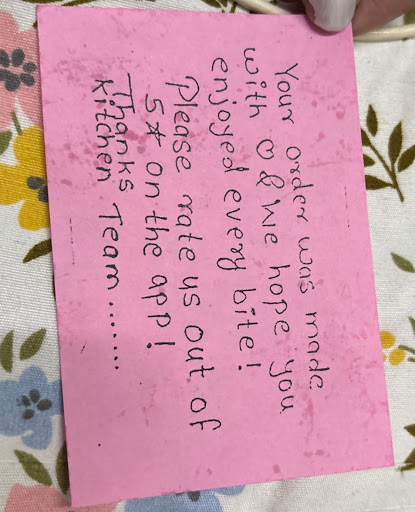 Your order was made
with ♡ & we hope you
enjoyed every bite!
Please rate us out of
5☆ on the app!
Thanks
Kitchen Team.......